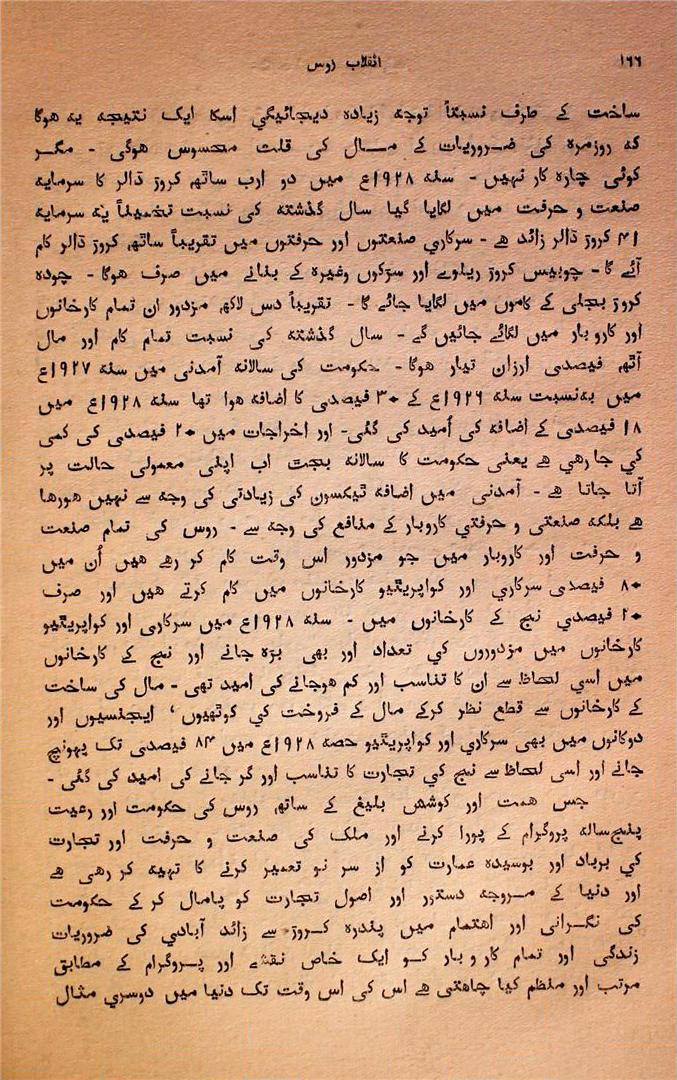 ۱۶۶
انقلاب روس
ساخت کے طرف نسبتاً توجہ زیادہ دیجائیگي اسکا ایک نتیجہ یہ ھوگا
کہ روزمرہ کی ضروریات کے مال کی قلت محسوس ھوگی - مگر
کوئی چارہ کار نہیں - سنہ ۱۹۲۸ع میں دو ارب ساٹھ کروڑ ڈالر کا سرمایہ
صنعت و حرفت میں لگایا گیا سال گذشتہ کی نسبت تخمیناً یہ سرمایہ
۴۱ کروڑ ڈالر زائد ھے - سرکاري صنعتوں اور حرفتوں میں تقریباً ساٹھ کروڑ ڈالر کام
آئے گا - چوبیس کروڑ ریلوے اور سڑکوں وغیرہ کے بنانے میں صرف ھوگا - چودہ
کروڑ بجلی کے کاموں میں لگایا جائے گا - تقریباً دس لاکھ مزدور ان تمام کارخانوں
اور کارو بار میں لگائے جائیں گے - سال گذشتہ کی نسبت تمام کام اور مال
آٹھ فیصدی ارزاں تیار ھوگا - حکومت کی سالانہ آمدنی میں سنہ ۱۹۲۷ع
میں بہ‌نسبت سنہ ۱۹۲۶ع کے ۳۰ فیصدی کا اضافہ ھوا تھا سنہ ۱۹۲۸ع میں
۱۸ فیصدی کے اضافہ کی اُمید کی گئی - اور اخراجات میں ۲۰ فیصدی کی کمی
کی جا رھی ھے یعنی حکومت کا سالانہ بجٹ اب اپنی معمولی حالت پر
آتا جاتا ھے - آمدنی میں اضافہ ٹیکسوں کی زیادتی کی وجہ سے نہیں ھورھا
ھے بلکہ صنعتی و حرفتي کاروبار کے منافع کی وجہ سے - روس کی تمام صنعت
و حرفت اور کاروبار میں جو مزدور اس وقت کام کر رھے ھیں اُن میں
۸۰ فیصدی سرکاري اور کواپریٹیو کارخانوں میں کام کرتے ھیں اور صرف
۲۰ فیصدي نج کے کارخانوں میں - سنہ ۱۹۲۸ع میں سرکاری اور کواپریٹیو
کارخانوں میں مزدوروں کي تعداد اور بھی بڑہ جانے اور نج کے کارخانوں
میں اسی لحاظ سے ان کا تناسب اور کم ھوجانے کی امید تھی - مال کی ساخت
کے کارخانوں سے قطع نظر کرکے مال کے فروخت کی کوٹھیوں ‘ ایجنسیوں اور
دوکانوں میں بھی سرکاري اور کواپریٹیو حصہ ۱۹۲۸ع میں ۸۴ فیصدی تک پہونچ
جانے اور اسی لحاظ سے نج کي تجارت کا تناسب اور گر جانے کی امید کی گئی -
جس ھمت اور کوشش بلیغ کے ساتھ روس کی حکومت اور رعیت
پنج‌سالہ پروگرام کے پورا کرنے اور ملک کی صنعت و حرفت اور تجارت
کي برباد اور بوسیدہ عمارت کو از سر نو تعمیر کرنے کا تہیہ کر رھی ھے
اور دنیا کے مروجہ دستور اور اصول تجارت کو پامال کر کے حکومت
کی نگرانی اور اھتمام میں پندرہ کروڑ سے زائد آبادي کی ضروریات
زندگی اور تمام کار و بار کو ایک خاص نقشے اور پروگرام کے مطابق
مرتب اور منظم کیا چاھتی ھے اس کی اس وقت تک دنیا میں دوسري مثال